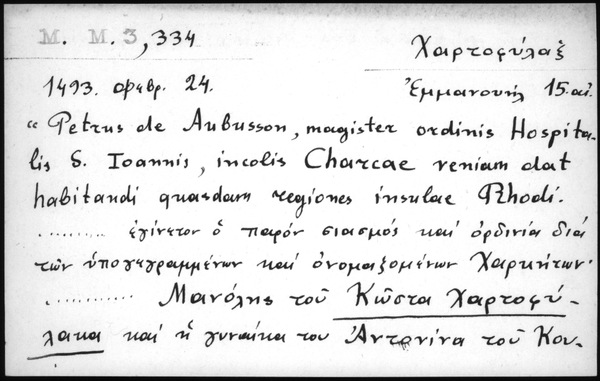 M. M. 3, 334
Χαρτοφύλαξ
1493. Φεβρ. 24.
Ἐμμανουήλ 15. αἰ.
" Petrus de Aubusson, magister ordinis Hospita-
lis S. Ioannis, incolis Charcae veniam dat
habitandi quasdam regiones insulae Rhodi.
......... ἐγίνετον ὁ παρόν σιασμός καί ὀρδινία διά
τῶν ὑπογεγραμμένων καί ὀνομαζομένων Χαρκήτων·
............ Μανόλης τοῦ Κῶστα Χαρτοφύ-
λακα καί ἡ γυναίκα του Ἀντωνίνα τοῦ Κου-